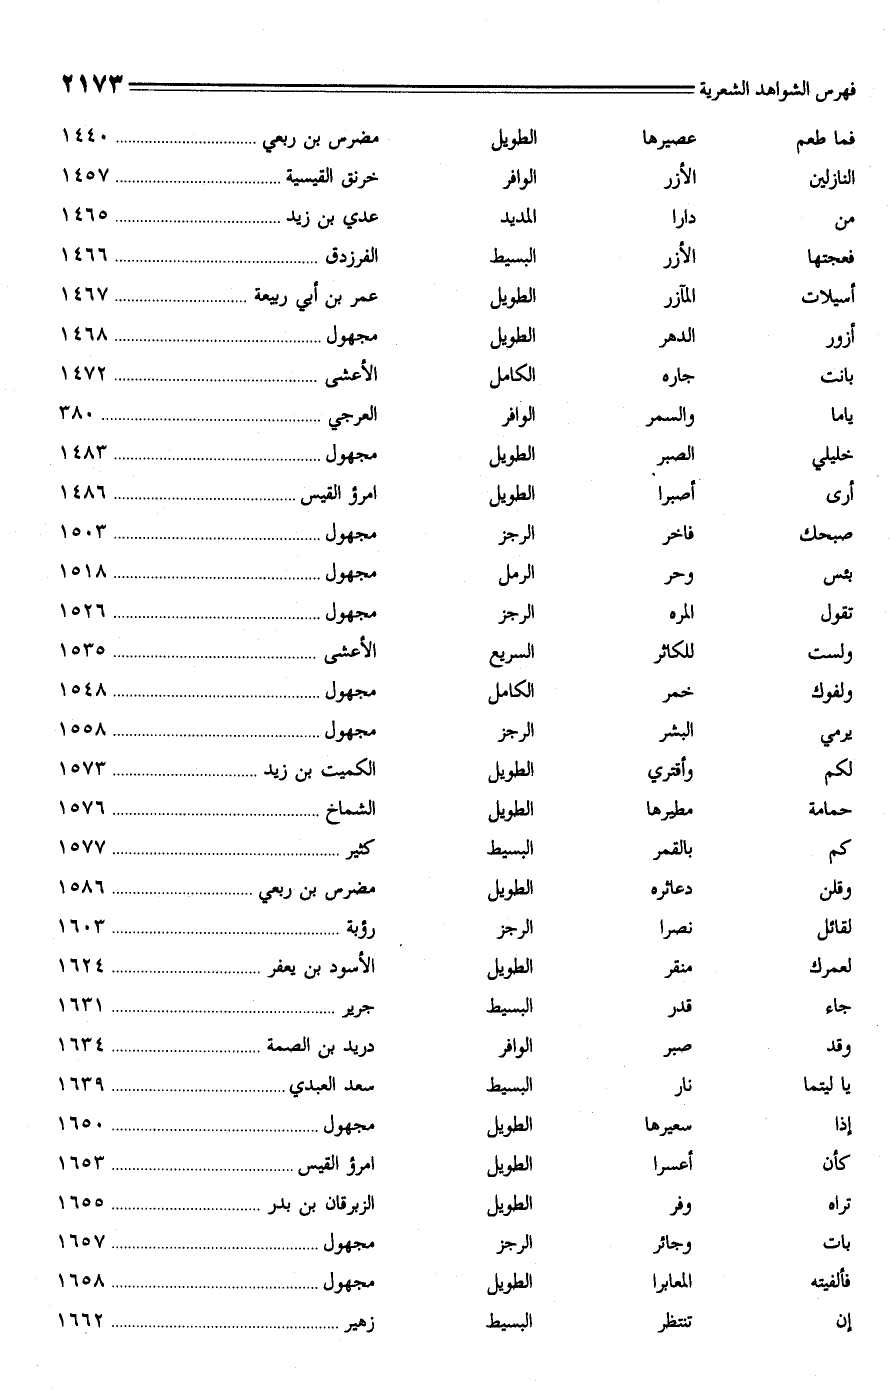 فهرس الشواهد الشعرية ٢١٧٣
فما طعم عصيرها الطويل مضرس بن ربعي ١٤٤٠
النازلين الأزر الوافر خرنق القيسية ١٤٥٧
من دارا المديد عدي بن زيد ١٤٦٥
فعجتها الأزر البسيط الفرزدق ١٤٦٦
أسيلات المآزر الطويل عمر بن أبي ربيعة ١٤٦٧
أزور الدهر الطويل مجهول ١٤٦٨
بانت جاره الكامل الأعشى ١٤٧٢
ياما والسمر الوافر العرجي ٣٨٠
خليلي الصبر الطويل مجهول ١٤٨٣
أرى أصبرا الطويل امرؤ القيس ١٤٨٦
صبحك فاخر الرجز مجهول ١٥٠٣
بئس وحر الرمل مجهول ١٥١٨
تقول المره الرجز مجهول ١٥٢٦
ولست للكاثر السريع الأعشى ١٥٣٥
ولفوك خمر الكامل مجهول ١٥٤٨
يرمي البشر الرجز مجهول ١٥٥٨
لكم وأقتري الطويل الكميت بن زيد ١٥٧٣
حمامة مطيرها الطويل الشماخ ١٥٧٦
كم بالقمر البسيط كثير ١٥٧٧
وقلن دعاثره الطويل مضرس بن ربعي ١٥٨٦
لقائل نصرا الرجز رؤبة ١٦٠٣
لعمرك منقر الطويل الأسود بن يعفر ١٦٢٤
جاء قدر البسيط جرير ١٦٣١
وقد صبر الوافر دريد بن الصمة ١٦٣٤
يا ليتما نار البسيط سعد العبدي ١٦٣٩
إذا سعيرها الطويل مجهول ١٦٥٠
كأن أعسرا الطويل امرؤ القيس ١٦٥٣
تراه وفر الطويل الزبرقان بن بدر ١٦٥٥
بات وجائر الرجز مجهول ١٦٥٧
فألفيته المعابرا الطويل مجهول ١٦٥٨
إن تنتظر البسيط زهير ١٦٦٢